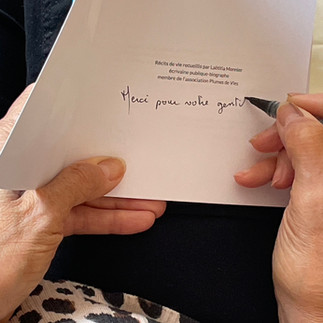 Récits de vie recueillis par Laëtitia Monnier
écrivaine publique-biographe
membre de l'association Plumes de Vies
Merci pour votre genti